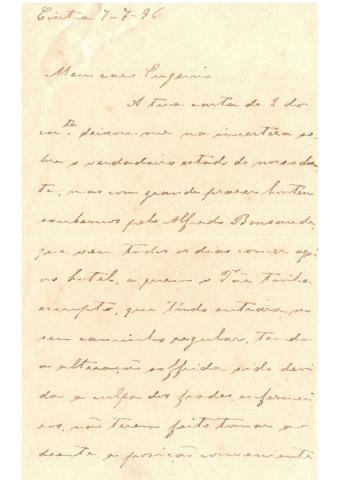 Cintra 7-7-96
Meu caro Eugenio
A tua carta de 2 do
corr.te deixou-me na incerteza so-
bre o verdadeiro estado do nosso
mas com grande prazer hontem
soubemos pelo Alfredo Bensaude,
que vem todos os dias comer aqui
ao hotel, a quem o Pae tinha
escripto, que tudo entrára no
seu caminho regular, tendo
a alteração soffrida sido devi-
da a culpa dos frades, enfermei-
ros, não terem feito tomar ao
doente a posição conveniente